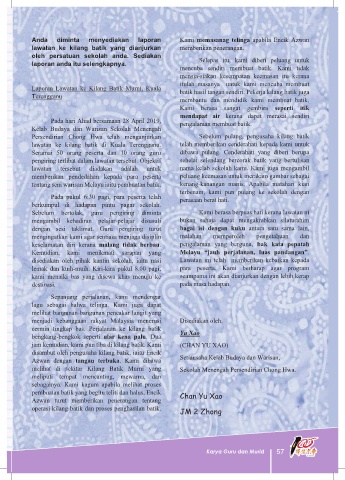 Anda diminta menyediakan laporan
lawatan ke kilang batik yang dianjurkan
oleh persatuan sekolah anda. Sediakan
laporan anda itu selengkapnya.
Laporan Lawatan ke Kilang Batik Murni, Kuala
Terengganu
Pada hari Ahad bersamaan 28 April 2019,
Kelab Budaya dan Warisan Sekolah Menengah
Persendirian Chong Hwa telah menganjurkan
lawatan ke kilang batik di Kuala Terengganu.
Seramai 50 orang peserta dan 10 orang guru
pengiring terlibat dalam lawatan tersebut. Objektif
lawatan tersebut diadakan adalah untuk
memberikan pendedahan kepada para peserta
tentang seni warisan Melayu iaitu pembuatan batik.
Pada pukul 6.30 pagi, para peserta telah
berkumpul di hadapan pintu pagar sekolah.
Sebelum bertolak, guru pengiring diminta
mengambil kehadiran pelajar-pelajar disusuli
dengan sesi taklimat. Guru pengiring turut
mengingatkan kami agar sentiasa menjaga disiplin
keselamatan diri kerana malang tidak berbau.
Kemudian, kami menikmati sarapan yang
disediakan oleh pihak kantin sekolah, iaitu nasi
lemak dan kuih-muih. Kira-kira pukul 8.00 pagi,
kami menaiki bas yang disewa khas menuju ke
destinasi.
Sepanjang perjalanan, kami mendengar
lagu sebagai halwa telinga. Kami juga dapat
melihat bangunan-bangunan pencakar langit yang
menjadi kebanggaan rakyat Malaysia menerusi
cermin tingkap bas. Perjalanan ke kilang batik
bengkang-bengkok seperti ular kena palu. Dua
jam kemudian, kami pun tiba di kilang batik. Kami
disambut oleh pengusaha kilang batik, iaitu Encik
Azwan dengan tangan terbuka. Kami dibawa
melihat di sekitar Kilang Batik Murni yang
meliputi tempat mencanting, mewarna, dan
sebagainya. Kami kagum apabila melihat proses
pembuatan batik yang begitu teliti dan halus. Encik
Azwan turut memberikan penerangan tentang
operasi kilang batik dan proses penghasilan batik.
Kami memasang telinga apabila Encik Azwan
memberikan penerangan.
Selepas itu, kami diberi peluang untuk
mencuba sendiri membuat batik. Kami tidak
mensia-siakan kesempatan keemasan itu kerana
itulah masanya untuk kami mencuba membuat
batik hasil tangan sendiri. Pekerja kilang batik juga
membantu dan mendidik kami membuat batik.
Kami berasa sangat gembira seperti itik
mendapat air kerana dapat merasai sendiri
pengalaman membuat batik.
Sebelum pulang, pengusaha kilang batik
telah memberikan cenderahati kepada kami untuk
dibawa pulang. Cenderahati yang diberi berupa
sehelai selendang bercorak batik yang bertulisan
nama kelab sekolah kami. Kami juga mengambil
peluang keemasan untuk merakam gambar sebagai
kenang-kenangan manis. Apabila matahari kian
terbenam, kami pun pulang ke sekolah dengan
perasaan berat hati.
Kami berasa berpuas hati kerana lawatan ini
bukan sahaja dapat mengeratkan silaturahim
bagai isi dengan kuku antara satu sama lain,
malahan memperoleh pengetahuan dan
pengalaman yang berguna, bak kata pepatah
Melayu "jauh perjalanan, luas pandangan".
Lawatan ini telah memberikan kebaikan kepada
para peserta. Kami berharap agar program
seumpama ini akan dianjurkan dengan lebih kerap
pada masa hadapan.
Disediakan oleh,
Yu Xao
(CHAN YU XAO)
Setiausaha Kelab Budaya dan Warisan,
Sekolah Menengah Persendirian Chong Hwa.
Chan Yu Xao
JM 2 Zhong
Karya Guru dan Murid 57